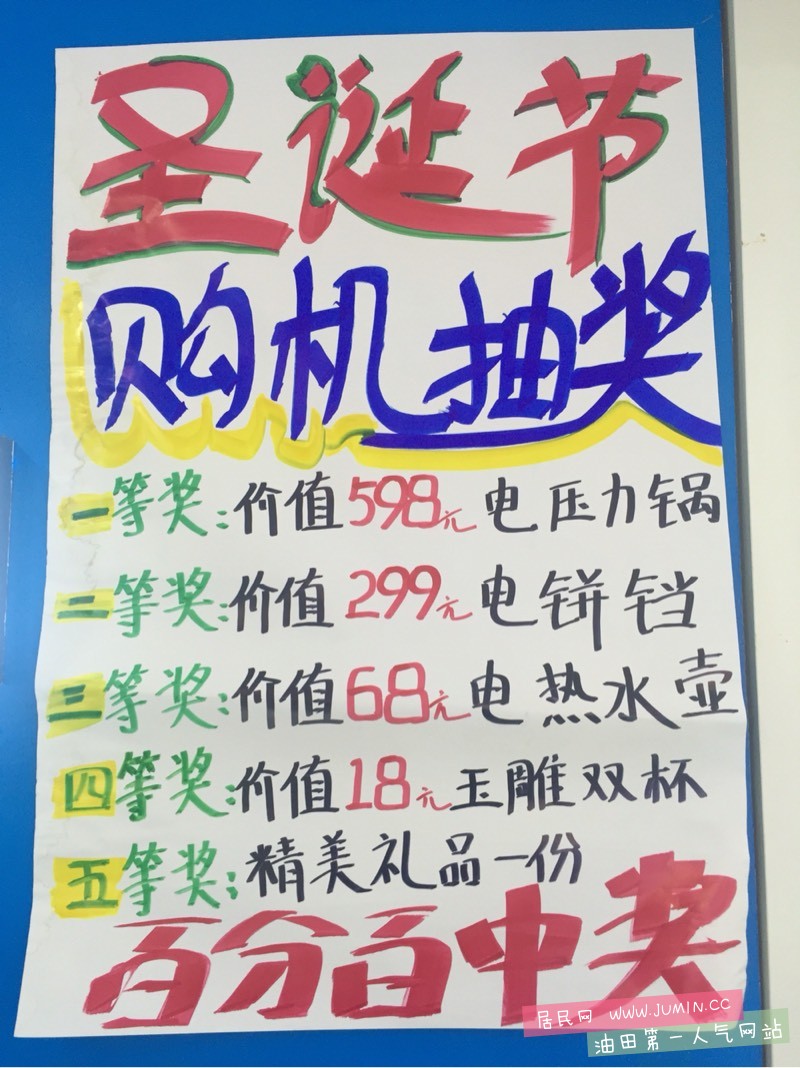 圣诞节
购机抽奖
一等奖:价值598元电压力锅
二等奖:价值299元电饼铛
三等奖:价值68元电热水壶
四等奖:价值18元玉雕双杯
五等奖:精美礼品一份
百分百中奖
居民网 WWW.JUMIN.CC
油田第一人气网站